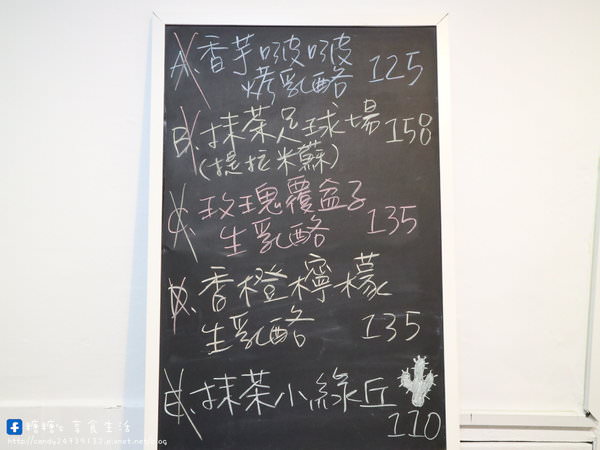 A. 香芋啵啵
烤乳酪 125
B. 抹茶足球場 150
(提拉米蘇)
C. 玫瑰覆盆子
生乳酪 135
D. 香橙檸檬
生乳酪 135
E. 抹茶小綠丘
110
糖糖's 享食生活
http://candy24939132.pixnet.net/blog